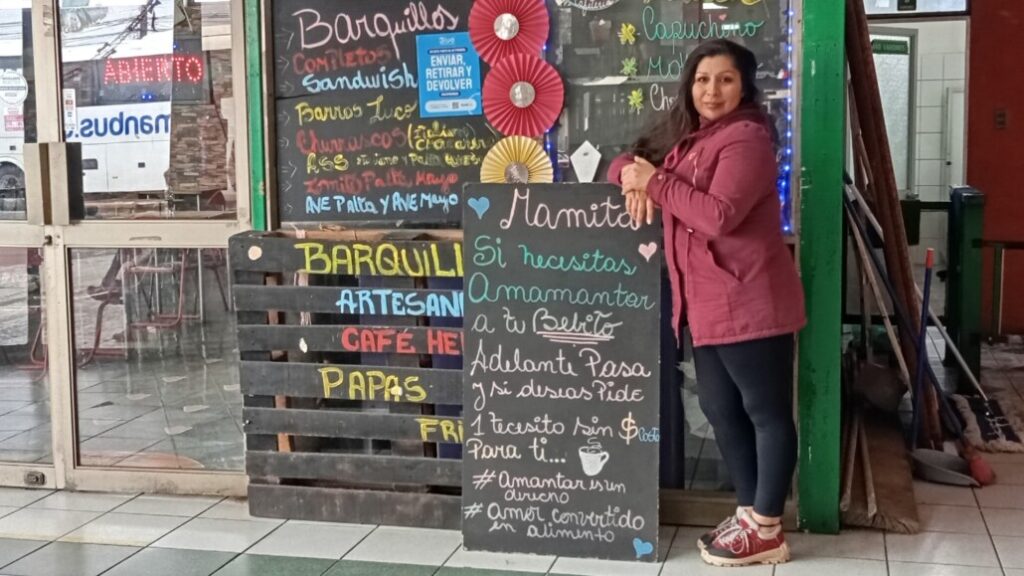 ABIERTO
manbus.c
Barquillos
Completos
Sandwish
Barros Luco
Churrascos
Ave Palta y Ave Mayo
ENVIAR,
RETIRAR Y
DEVOLVER
Capuchino
BARQUILL
ARTESAN
CAFÉ HE
PAPAS
FRI
Mamita
Si necesitas
Amamantar
a tu Bebito
Adelante Pasa
y si deseas Pide
1 tecito sin $ Costo
Para ti...
#Amamantar es un
derecho
#Amor convertido
en alimento